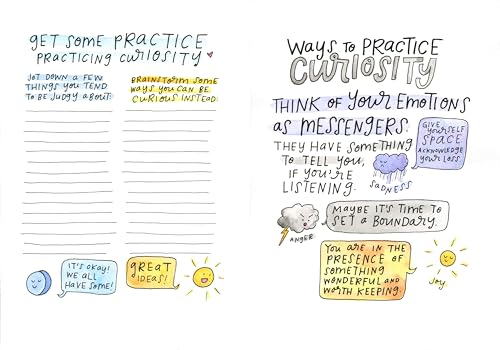 GET SOME PRACTICE
PRACTICING CURIOSITY
JOT DOWN A FEW
THINGS YOU TEND
TO BE JUDGY ABOUT:
BRAINSTORM SOME
WAYS YOU CAN BE
CURIOUS INSTEAD:
IT'S OKAY!
WE ALL
HAVE SOME!
GREAT
IDEAS!
WAYS TO PRACTICE
CURIOSITY
THINK OF YOUR EMOTIONS
AS MESSENGERS.
THEY HAVE SOMETHING
TO TELL YOU,
IF YOU'RE
LISTENING.
GIVE
YOURSELF
SPACE.
ACKNOWLEDGE
YOUR LOSS.
SADNESS
MAYBE IT'S TIME TO
SET A BOUNDARY.
ANGER
YOU ARE IN THE
PRESENCE OF
SOMETHING
WONDERFUL AND
WORTH KEEPING.
JOY